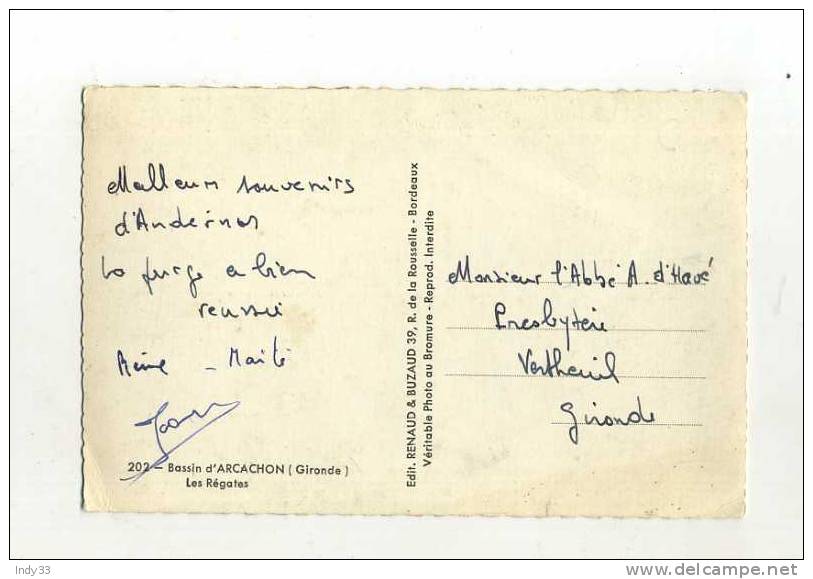 Meilleurs souvenirs
d'Andernos
la purge a bien
reussi
Reine - Maïté
202 – Bassin d'ARCACHON ( Gironde )
Les Régates
Edit. RENAUD & BUZAUD 39, R. de la Rousselle - Bordeaux
Véritable Photo au Bromure - Reprod. Interdite
Monsieur l'Abbé A. d'Havé
Presbytère
Vertheuil
Gironde
Indy33
delcampe.net